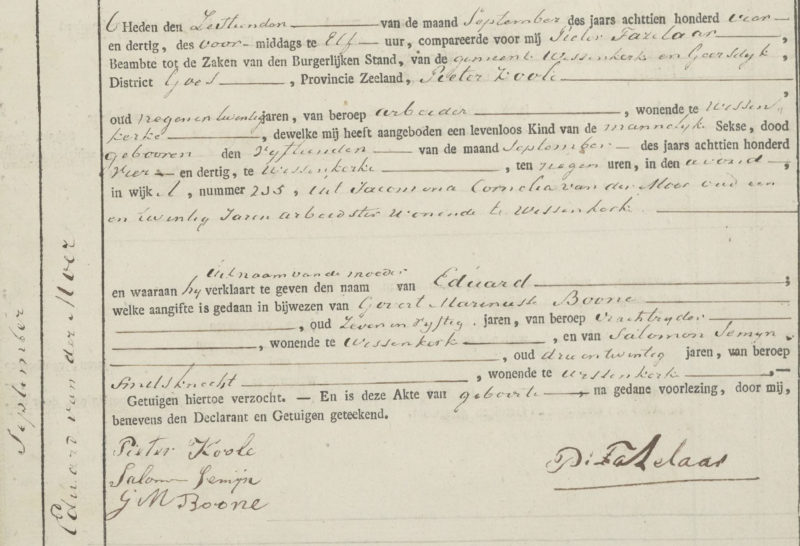 Heden den Zestienden van de maand September des jaars achttien honderd vier
en dertig, des voor middags te Elf uur, compareerde voor mij Pieter Fazelaar,
Beambte tot de Zaken van den Burgerlijken Stand, van de gemeente Wissenkerk en Geersdyk,
District Goes, Provincie Zeeland, Pieter Koole
oud negen en twintig jaren, van beroep arbeider, wonende te Wissen
kerke, dewelke mij heeft aangeboden een levenloos Kind van de mannelyk Sekse, dood
gebooren den Vyftienden van de maand September des jaars achttien honderd
vier en dertig, te Wissenkerke, ten negen uren, in den avond,
in wijk A, nummer 235, uit Jacomina Cornelia van der Moer oud een
en twintig Jaren arbeidster Wonende te Wissenkerk
Uit naam van de moeder
en waaraan hy verklaart te geven den naam van Eduard;
welke aangifte is gedaan in bijwezen van Govert Marinusse Boone
, oud Zeven en vyftig jaren, van beroep Vrachtryder
, wonende te Wissenkerk, en van Salomon Semyn
, oud drie en twintig jaren, van beroep
Smidsknecht, wonende te Wissenkerk,
Getuigen hiertoe verzocht. — En is deze Akte van geboorte, na gedane voorlezing, door mij,
benevens den Declarant en Getuigen geteekend.
Pieter Koole
Salomon Semijn
G M Boone
P: Fazelaar
September
Eduard van der Moer